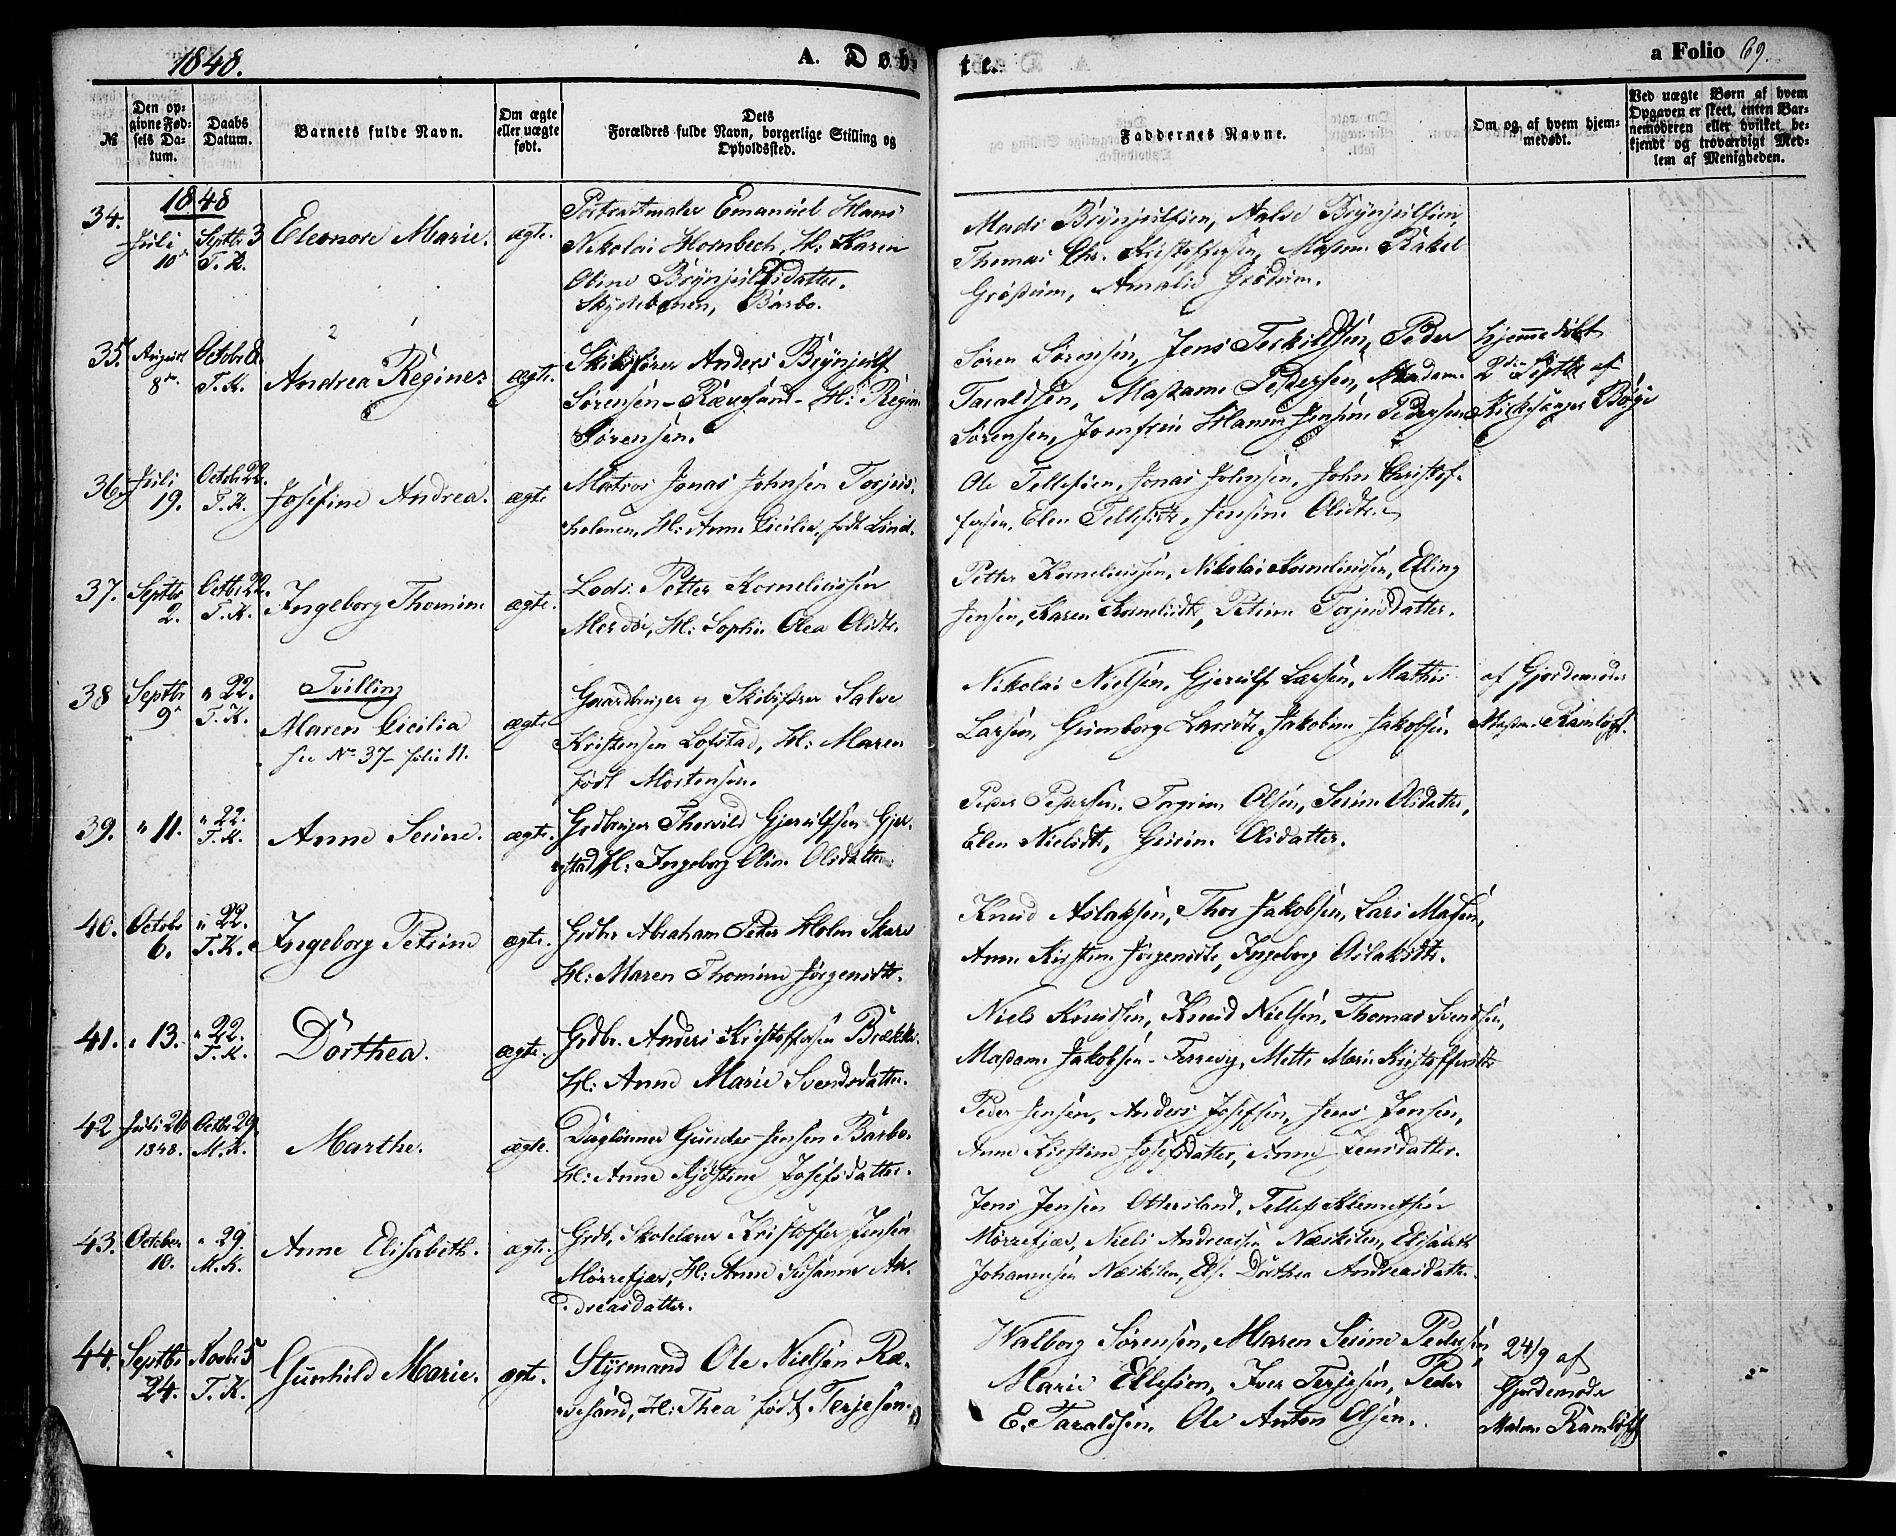 1848.
A. Døb-
te.
a Folio 69.
№
Den op-
givne Fød-
sels Da-
tum.
Daabs
Datum.
Barnets fulde Navn.
Om ægte
eller uægte
født.
Dets
Forældres fulde Navn, borgerlige Stilling og
Opholdssted.
Faddernes Navne.
Om og af hvem hjem-
medøbt.
Ved uægte Børn af hvem
Opgaven er skeet, enten Bar-
nemoderen eller hvilket be-
kjendt og troværdigt Med-
lem af Menigheden.
1848
34. Juli 10de Septbr 3 T. K. Eleonore Marie. ægte.
Portraitmaler Emanuel Hans
Nikolai Hornbech, H: Karen
Oline Brynjulfsdatter.
Skydebanen, Barbo.
Mads Brynjulfsen, Brynjulfsen
Thomas Chr. Kristoffersen, Madam Rakel
Grødum, Amalie Grødum.
35. August 8de October 8 T. K. Andrea Regine. ægte.
Skibsfører Anders Brynjulf
Sørensen - Rævesand - H: Regine
Sørensen.
Søren Sørensen, Jens Terkildsen, Peder
Taraldsen, Madame Pedersen, Madam
Sørensen, Jomfru Hanne Jensine Pedersen
hjemmedøbt
2den Septbr af
Kirkesanger Børge
36. Juli 19. Octobr 22. T. K. Josefine Andrea. ægte
Matros Jonas Johnsen Torjus-
holmen, H: Anne Cicilie, født Lind.
Ole Tellefsen, Jonas Johnsen, John Christof-
fersen, Elen Tellefsdtr, Jensine Olsdtr.
37. Septbr 2. Octbr 22. T. K. Ingeborg Thomine ægte.
Lods Petter Korneliussen
Merdøe, H: Sophie Olea Olsdtr.
Petter Korneliussen, Nikolai Korneliussen, Elling
Jensen, Karen Kornelsdtr, Petrine Torjusdatter.
38 Septbr 9de " 22. T. K. Tvilling
Maren Cicilia
see No 37 - folio 11.
ægte
Gaardbruger og Skibsfører Salve
Kristensen Lofstad, H: Maren
født Mortensen.
Nikolai Nielsen, Gjerulf Larsen, Mathis
Larsen, Gunborg Larsdtr, Jakobine Jakobsen.
af Gjordemoder
Madam Ramløfft.
39. " 11. " 22. T. K. Anne Serine. ægte.
Grdbruger Thorvild Gjerulfsen Gjer-
stad H: Ingeborg Oline Olsdatter.
Peder Pedersen, Torgrim Olsen, Serine Olsdatter,
Elen Nielsdtr, Gusine Olsdatter.
40. Octobr 6. " 22. T. K. Ingeborg Petrine ægte.
Grdbr Abraham Peter Holm Skare
H: Maren Thomine Jørgensdtr.
Knud Aslaksen, Thor Jakobsen, Lars Madsen,
Anne Kirstine Jørgensdtr, Ingeborg Aslaksdtr.
41. " 13. " 22. T. K. Dorthea. ægte.
Grdbr. Anders Kristoffersen Brække
H: Anne Marie Svendsdatter.
Niels Knudsen, Knud Nielsen, Thomas Svendsen,
Madam Jakobsen - Ferrevig, Mette Marie Kristoffersdtr
42 Juli 26 1848. Octbr 29. M. K. Marthe. ægte.
Daglønner Gunder Jensen Barbo.
H: Anne Kjøstine Josefsdatter.
Peder Jensen, Anders Josefsen, Jens Jensen,
Anne Kirstine Josefsdatter, Anne Jensdatter.
43. October 10. " 29. M. K. Anne Elisabeth. ægte.
Grdb. Skolelærer Kristoffer Jensen
Mørrefjær, H: Anne Susanne An-
dreasdatter.
Jens Jensen Ottersland, Tellef Klemetsen
Mørrefjær, Niels Andreassen Næskilen, Elisabeth
Johannesen Næskilen, Else Dorthea Andreasdatter.
44. Septbr 24. Novbr 5 T. K. Gunhild Marie. ægte.
Styrmand Ole Nielsen Ræ-
vesand, H: Thea født Terjesen.
Walborg Sørensen, Maren Serine Pedersen,
Marie Ellefsen, Iver Terjesen, Peder
E. Taraldsen, Ole Anton Olsen.
24/9 af
Gjordemoder
Madam Ramløfft